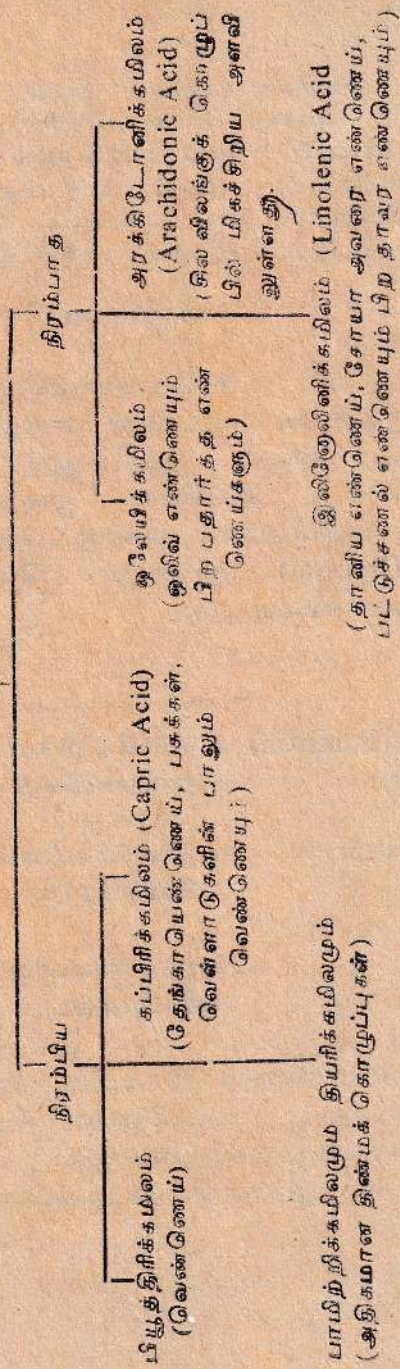 நிரம்பிய
நிரம்பாத
பியூத்திரிக்கமிலம்
(வெண்ணெய்)
கப்பிரிக்கமிலம் (Capric Acid)
(தேங்காயெண்ணெய், பசுக்கள்,
வெள்ளாடுகளின் பாலும்
வெண்ணெயும்)
பாமிற்றிக்கமிலமும் தியரிக்கமிலமும்
(அதிகமான திண்மக் கொழுப்புகள்)
ஒலேயிக்கமிலம்
(ஒலிவ் எண்ணெயும்
பிற பதார்த்த எண்
ணெய்களும்)
அரக்கிடோனிக்கமிலம்
(Arachidonic Acid)
(சில விலங்குக் கொழுப்
பில் மிகச்சிறிய அளவி
லுள்ளது.
இலினோலினிக்கமிலம் (Linolenic Acid
(தானிய எண்ணெய், சோயா அவரை எண்ணெய்,
பட்டுச்சணல் எண்ணெயும் பிற தாவர எண்ணெயும்)